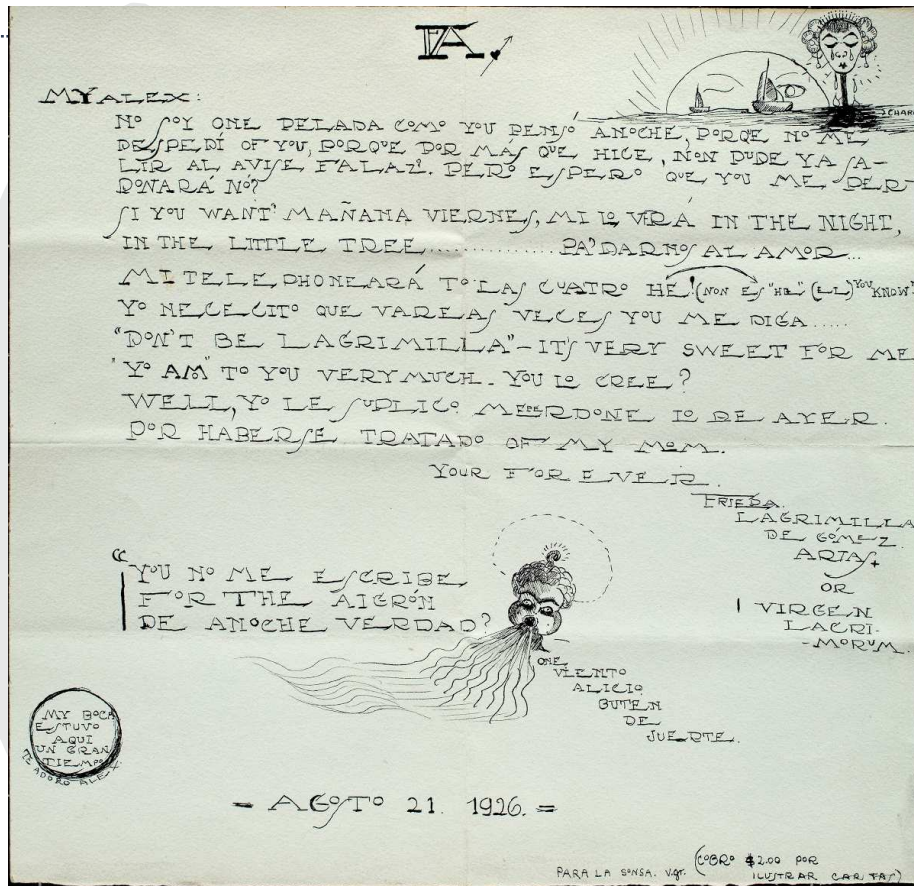 FA.
MY ALEX:
NO SOY ONE PELADA COMO YOU PENSÓ ANOCHE, PORQE NO ME
DESPEDÍ OF YOU, PORQUE POR MÁS QUE HICE, NON PUDE YA SA-
LIR AL AVISE F'ALAZ!. PERO ESPERO QUE YOU ME PER-
DONARÁ NÓ?
SI YOU WANT' MAÑANA VIERNES, MI LO VERÁ IN THE NIGHT,
IN THE LITTLE TREE............ PA'DARNOS AL AMOR...
MI TELEPHONEARÁ TO LAS CUATRO HE! (NON ES "HE" (EL) YOU KNOW?
YO NECECITO QUE VAREAS VECES YOU ME DIGA.....
"DON'T BE LAGRIMILLA"-IT'S VERY SWEET FOR ME
"YO AM" TO YOU VERY MUCH. YOU LO CREE?
WELL, YO LE SUPLICO ME PERDONE LO DE AYER.
POR HABERSE TRATADO OF MY MOM.
YOUR FOR EVEIR.
FRIEDA.
LAGRIMILLA
DE GÓMEZ
ARIAS.
OR
VIRGEN
LACRI-
-MORUM.
"YOU NO ME ESCRIBE
FOR THE AIGRÓN
DE ANOCHE VERDAD?
ONE
VIENTO
ALICIO
BUTEN
DE
JUERTE.
MY BOCA
ESTUVO
AQUI
UN GRAN
TIEMPO
TE ADORO ALEX
- AGOSTO 21. 1926. =
PARA LA SONSA. V.gr. (COBRO $2.00 POR
ILUSTRAR CARTAS)